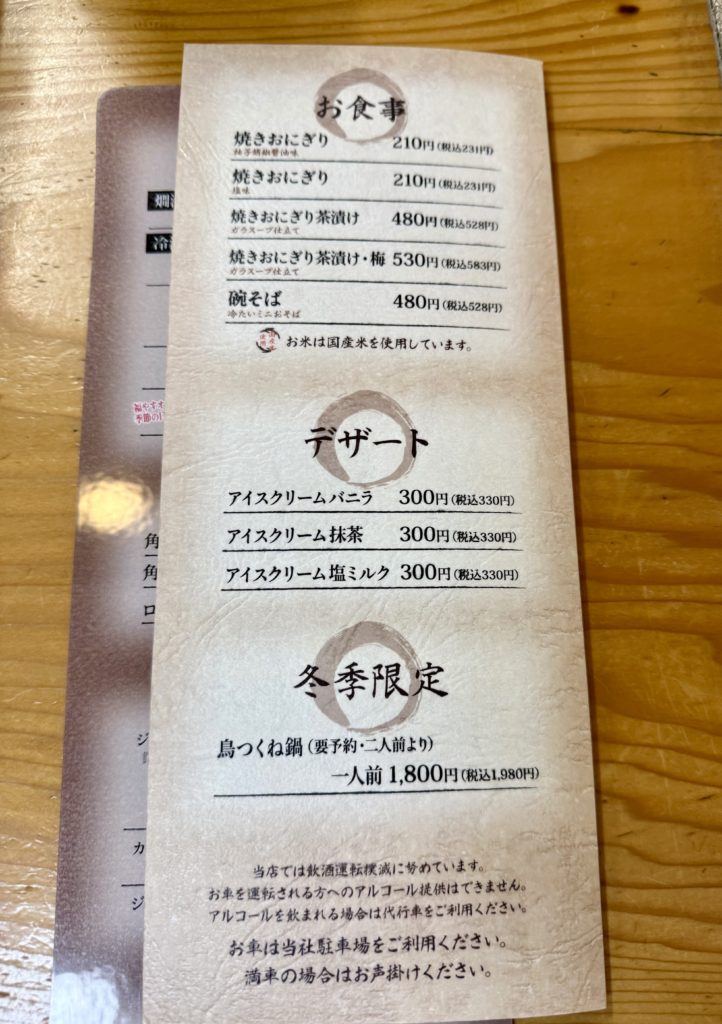 お食事
焼きおにぎり 210円(税込231円)
柚子胡椒醤油味
焼きおにぎり 210円(税込231円)
塩味
焼きおにぎり茶漬け 480円(税込528円)
ガラスープ仕立て
焼きおにぎり茶漬け・梅 530円(税込583円)
ガラスープ仕立て
碗そば 480円(税込528円)
冷たいミニおそば
お米は国産米を使用しています。
デザート
アイスクリームバニラ 300円(税込330円)
アイスクリーム抹茶 300円(税込330円)
アイスクリーム塩ミルク 300円(税込330円)
冬季限定
鳥つくね鍋(要予約・二人前より)
一人前 1,800円(税込1,980円)
当店では飲酒運転撲滅に努めています。
お車を運転される方へのアルコール提供はできません。
アルコールを飲まれる場合は代行車をご利用ください。
お車は当社駐車場をご利用ください。
満車の場合はお声掛けください。
冷
福やすす
季節の
角
角
ロ
ジ
カ
ジ